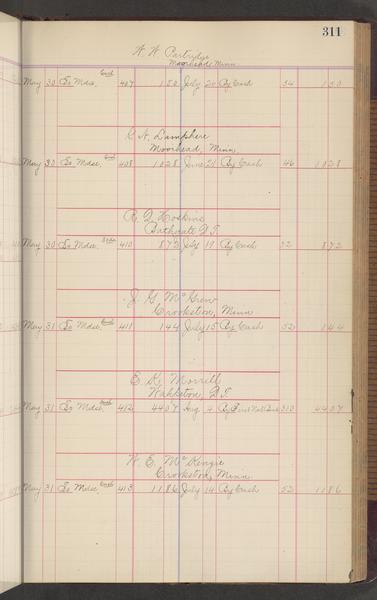 311
W. W. Partridge
Moorhead, Minn
May 30 To Mdse. 407 150 July 20 By Cash 54 150
C. H. Lamphere
Moorhead, Minn
May 30 To Mdse. 408 1028 June 21 By Cash 46 1028
R. D. Hoskins
Bathgate D.T.
May 30 To Mdse. 410 872 July 19 By Cash 52 872
J. G. McGrew
Crookston, Minn
May 31 To Mdse. 411 144 July 15 By Cash 52 144
E. K. Morrill
Wahpeton, D.T.
May 31 To Mdse. 412 4407 Aug 4 By First Natl Bank 310 4407
W. E. McKenzie
Crookston, Minn
May 31 To Mdse. 413 1186 July 14 By Cash 52 1186